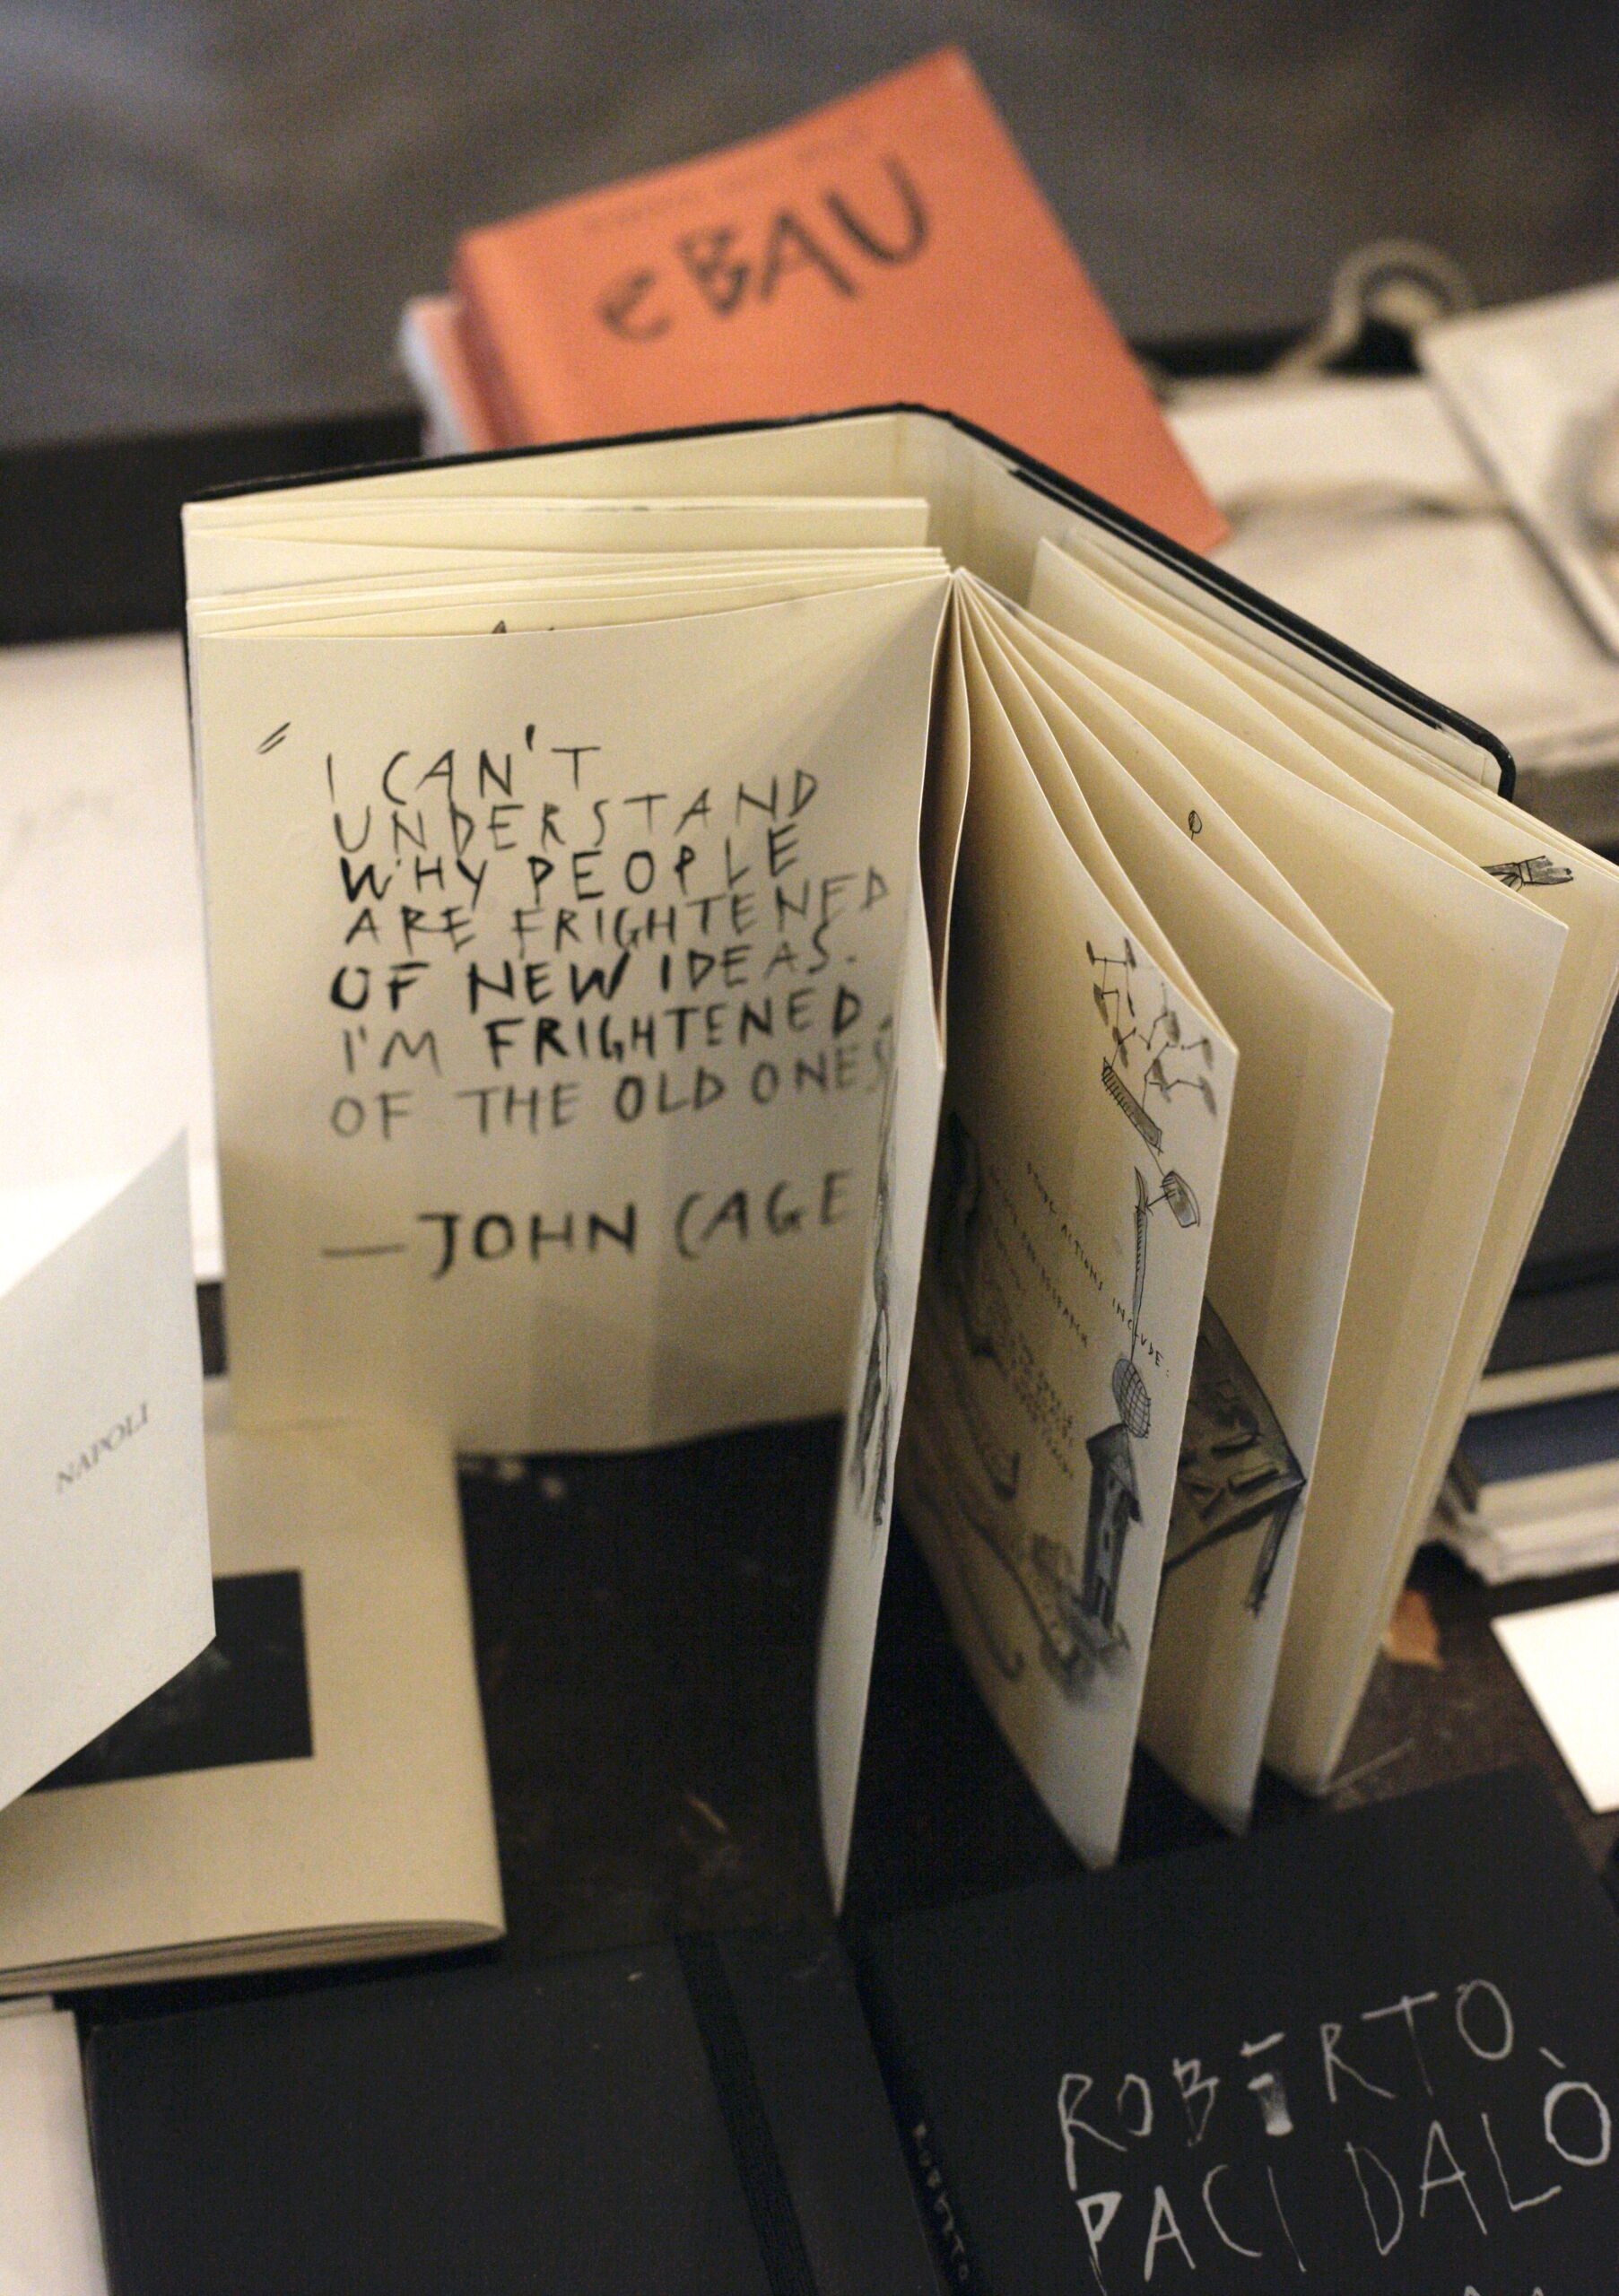 eBAU
"
I CAN'T
UNDERSTAND
WHY PEOPLE
ARE FRIGHTENED
OF NEW IDEAS.
I'M FRIGHTENED
OF THE OLD ONES
—JOHN CAGE
ACTIONS INCLUDE:
NAPOLI
ROBERTO
PACI DALÒ